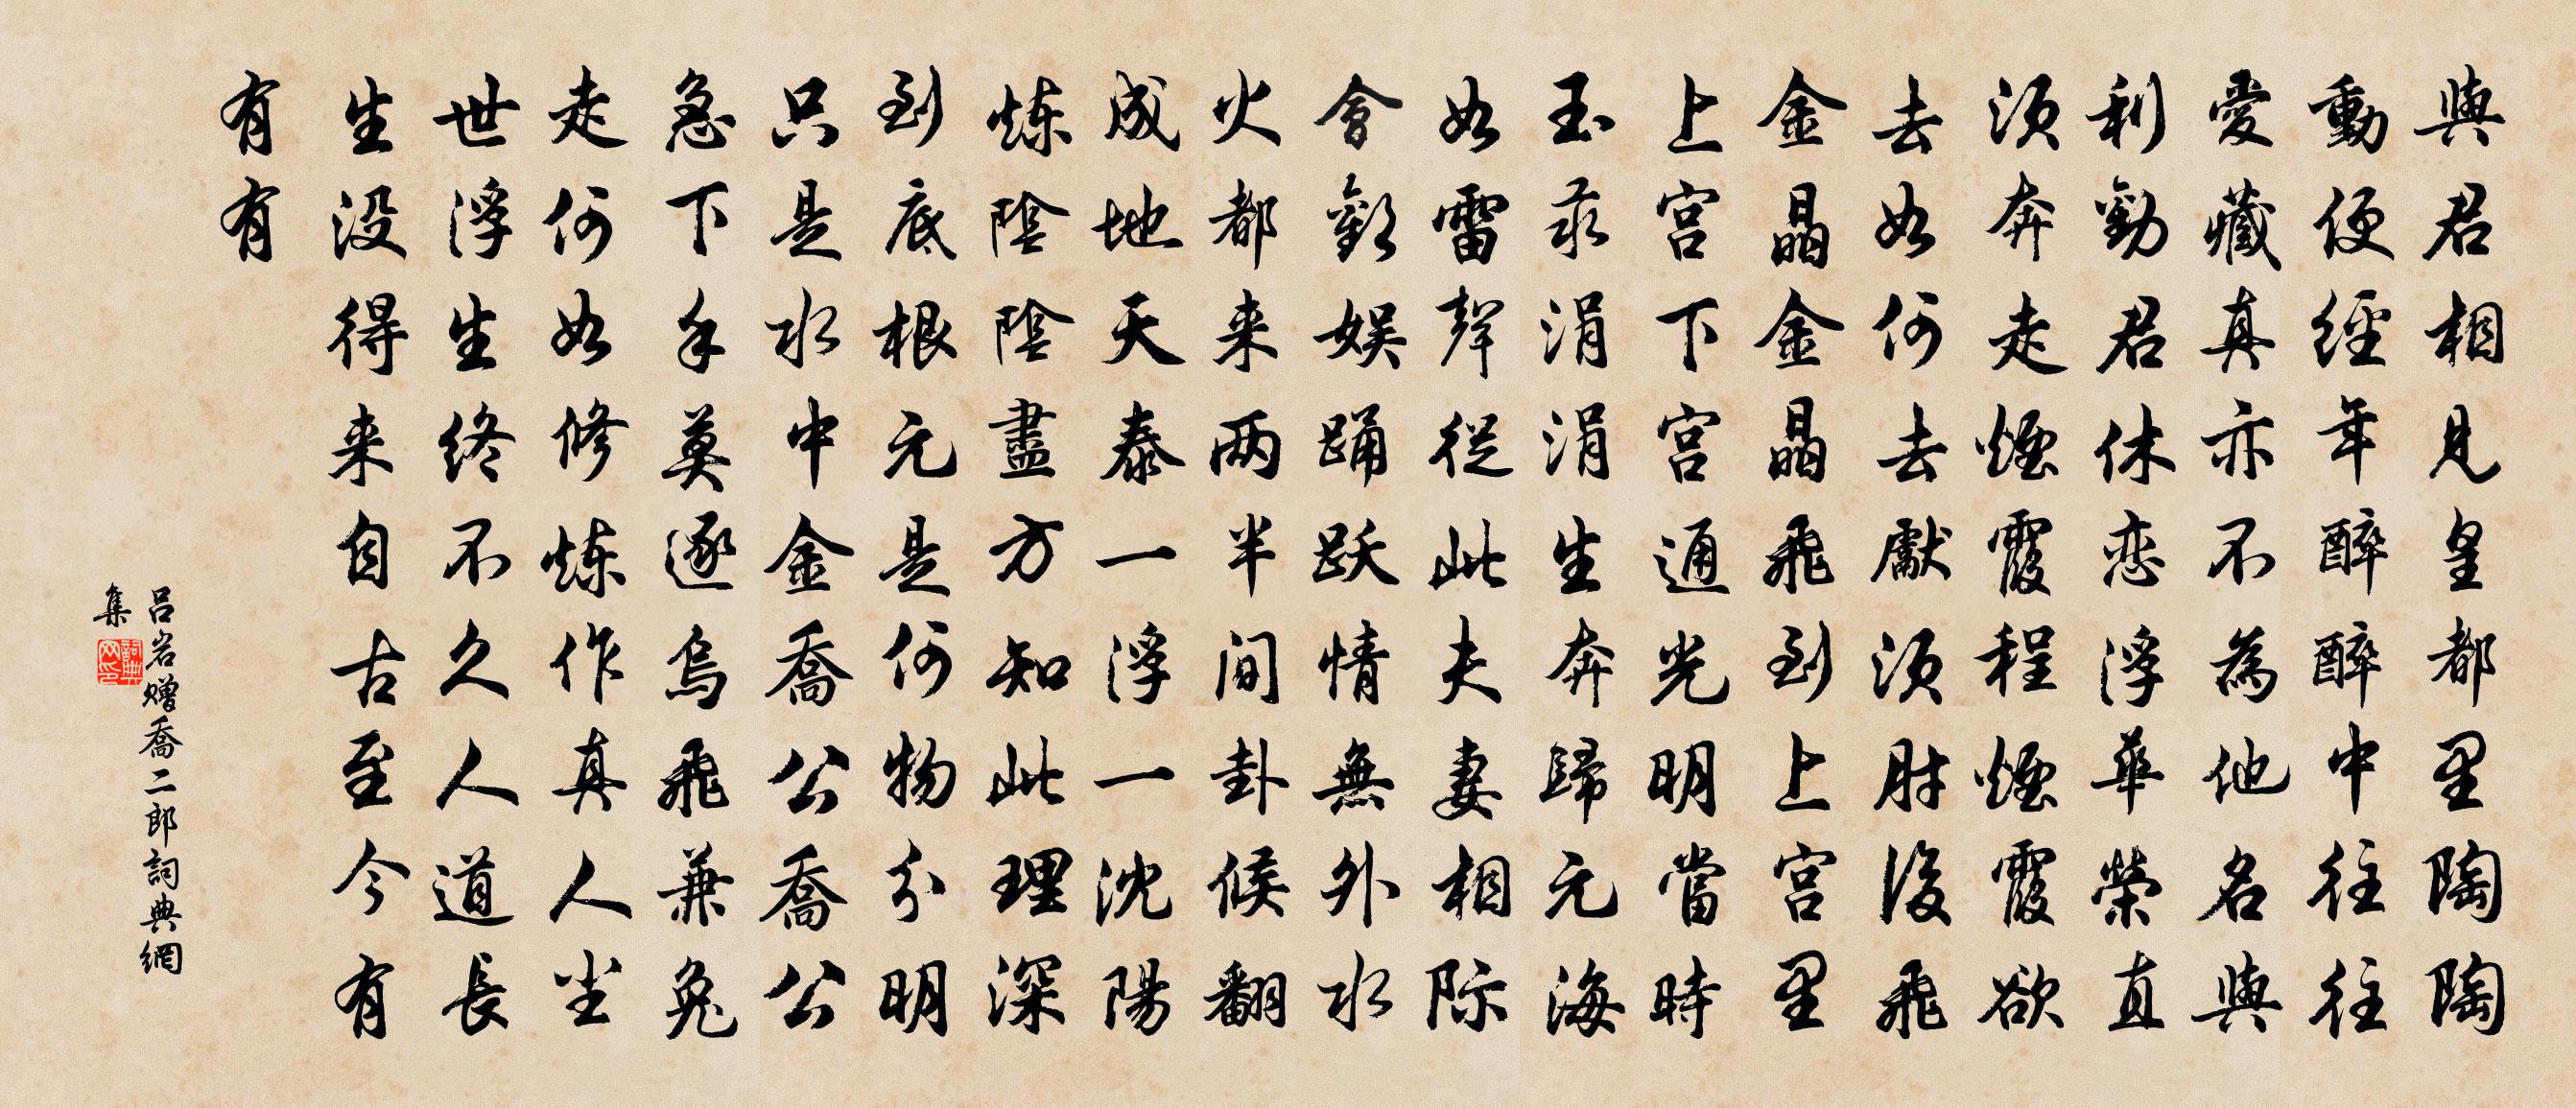 與君相見皇都里陶陶
動便經年醉醉中往往
愛藏真亦不為他名與
利勸君休恋浮華榮直
須奔走煙霞程煙霞欲
去如何去獻須肘後飛
金晶金晶飛到上宮里
上宮下宮通光明當時
玉汞涓涓生奔歸元海
如雷聲從此夫妻相际
會歡娱踊跃情無外水
火都来两半间卦候翻
成地天泰一浮一沈陽
炼陰陰盡方知此理深
到底根元是何物分明
只是水中金喬公喬公
急下手莫逐烏飛兼兔
走何如修炼作真人尘
世浮生终不久人道長
生没得来自古至今有
有有
吕岩赠喬二郎詞典網
集
詞典網印